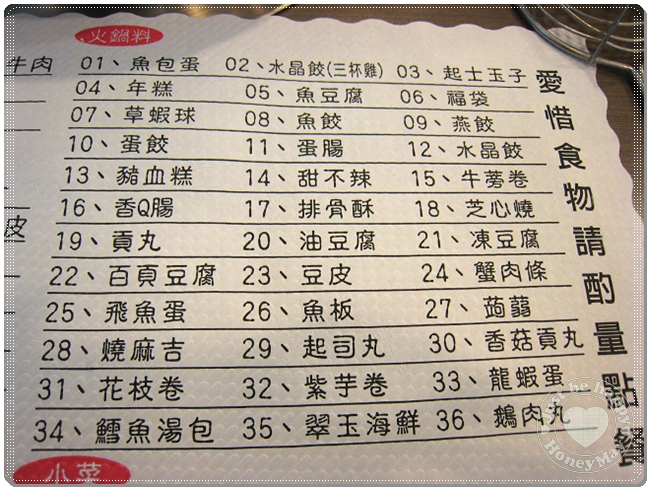 火鍋料
牛肉
01、魚包蛋 02、水晶餃(三杯雞) 03、起士玉子
04、年糕 05、魚豆腐 06、福袋
07、草蝦球 08、魚餃 09、燕餃
10、蛋餃 11、蛋腸 12、水晶餃
13、豬血糕 14、甜不辣 15、牛蒡卷
16、香Q腸 17、排骨酥 18、芝心燒
皮
19、貢丸 20、油豆腐 21、凍豆腐
22、百頁豆腐 23、豆皮 24、蟹肉條
25、飛魚蛋 26、魚板 27、蒟蒻
28、燒麻吉 29、起司丸 30、香菇貢丸
31、花枝卷 32、紫芋卷 33、龍蝦蛋
34、鱈魚湯包 35、翠玉海鮮 36、鵝肉丸
小菜
愛惜食物請酌量點餐
HoneyMag